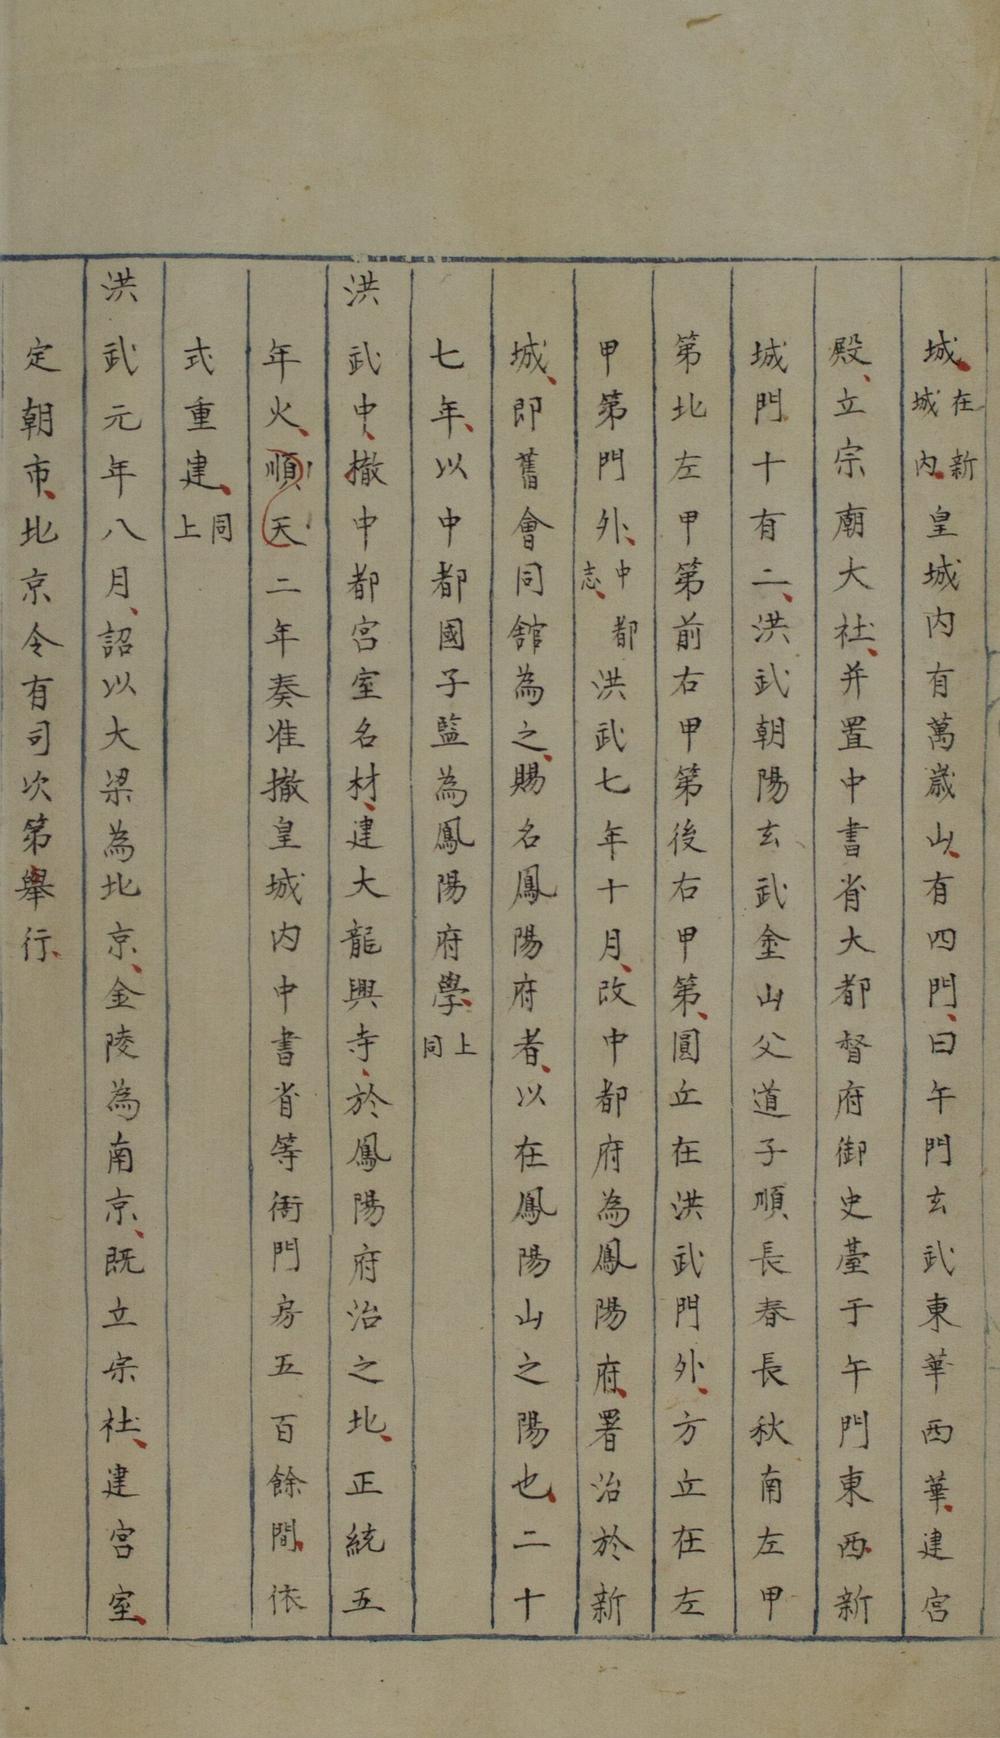 城在新城内皇城内有萬歲山有四門曰午門玄武東華西華建宮
殿立宗廟大社并置中書省大都督府御史臺于午門東西新
城門十有二洪武朝陽玄武金山父道子順長春長秋南左甲
第北左甲第前右甲第後右甲第圓丘在洪武門外方丘在左
甲第門外中都志洪武七年十月改中都府為鳳陽府署治於新
城即舊會同館為之賜名鳳陽府者以在鳳陽山之陽也二十
七年以中都國子監為鳳陽府學同上
洪武中撤中都宮室名材建大龍興寺於鳳陽府治之北正統五
年火順天二年奏准撤皇城内中書省等衙門房五百餘間依
式重建同上
洪武元年八月詔以大梁為北京金陵為南京既立宗社建宮室
定朝市北京令有司次第舉行